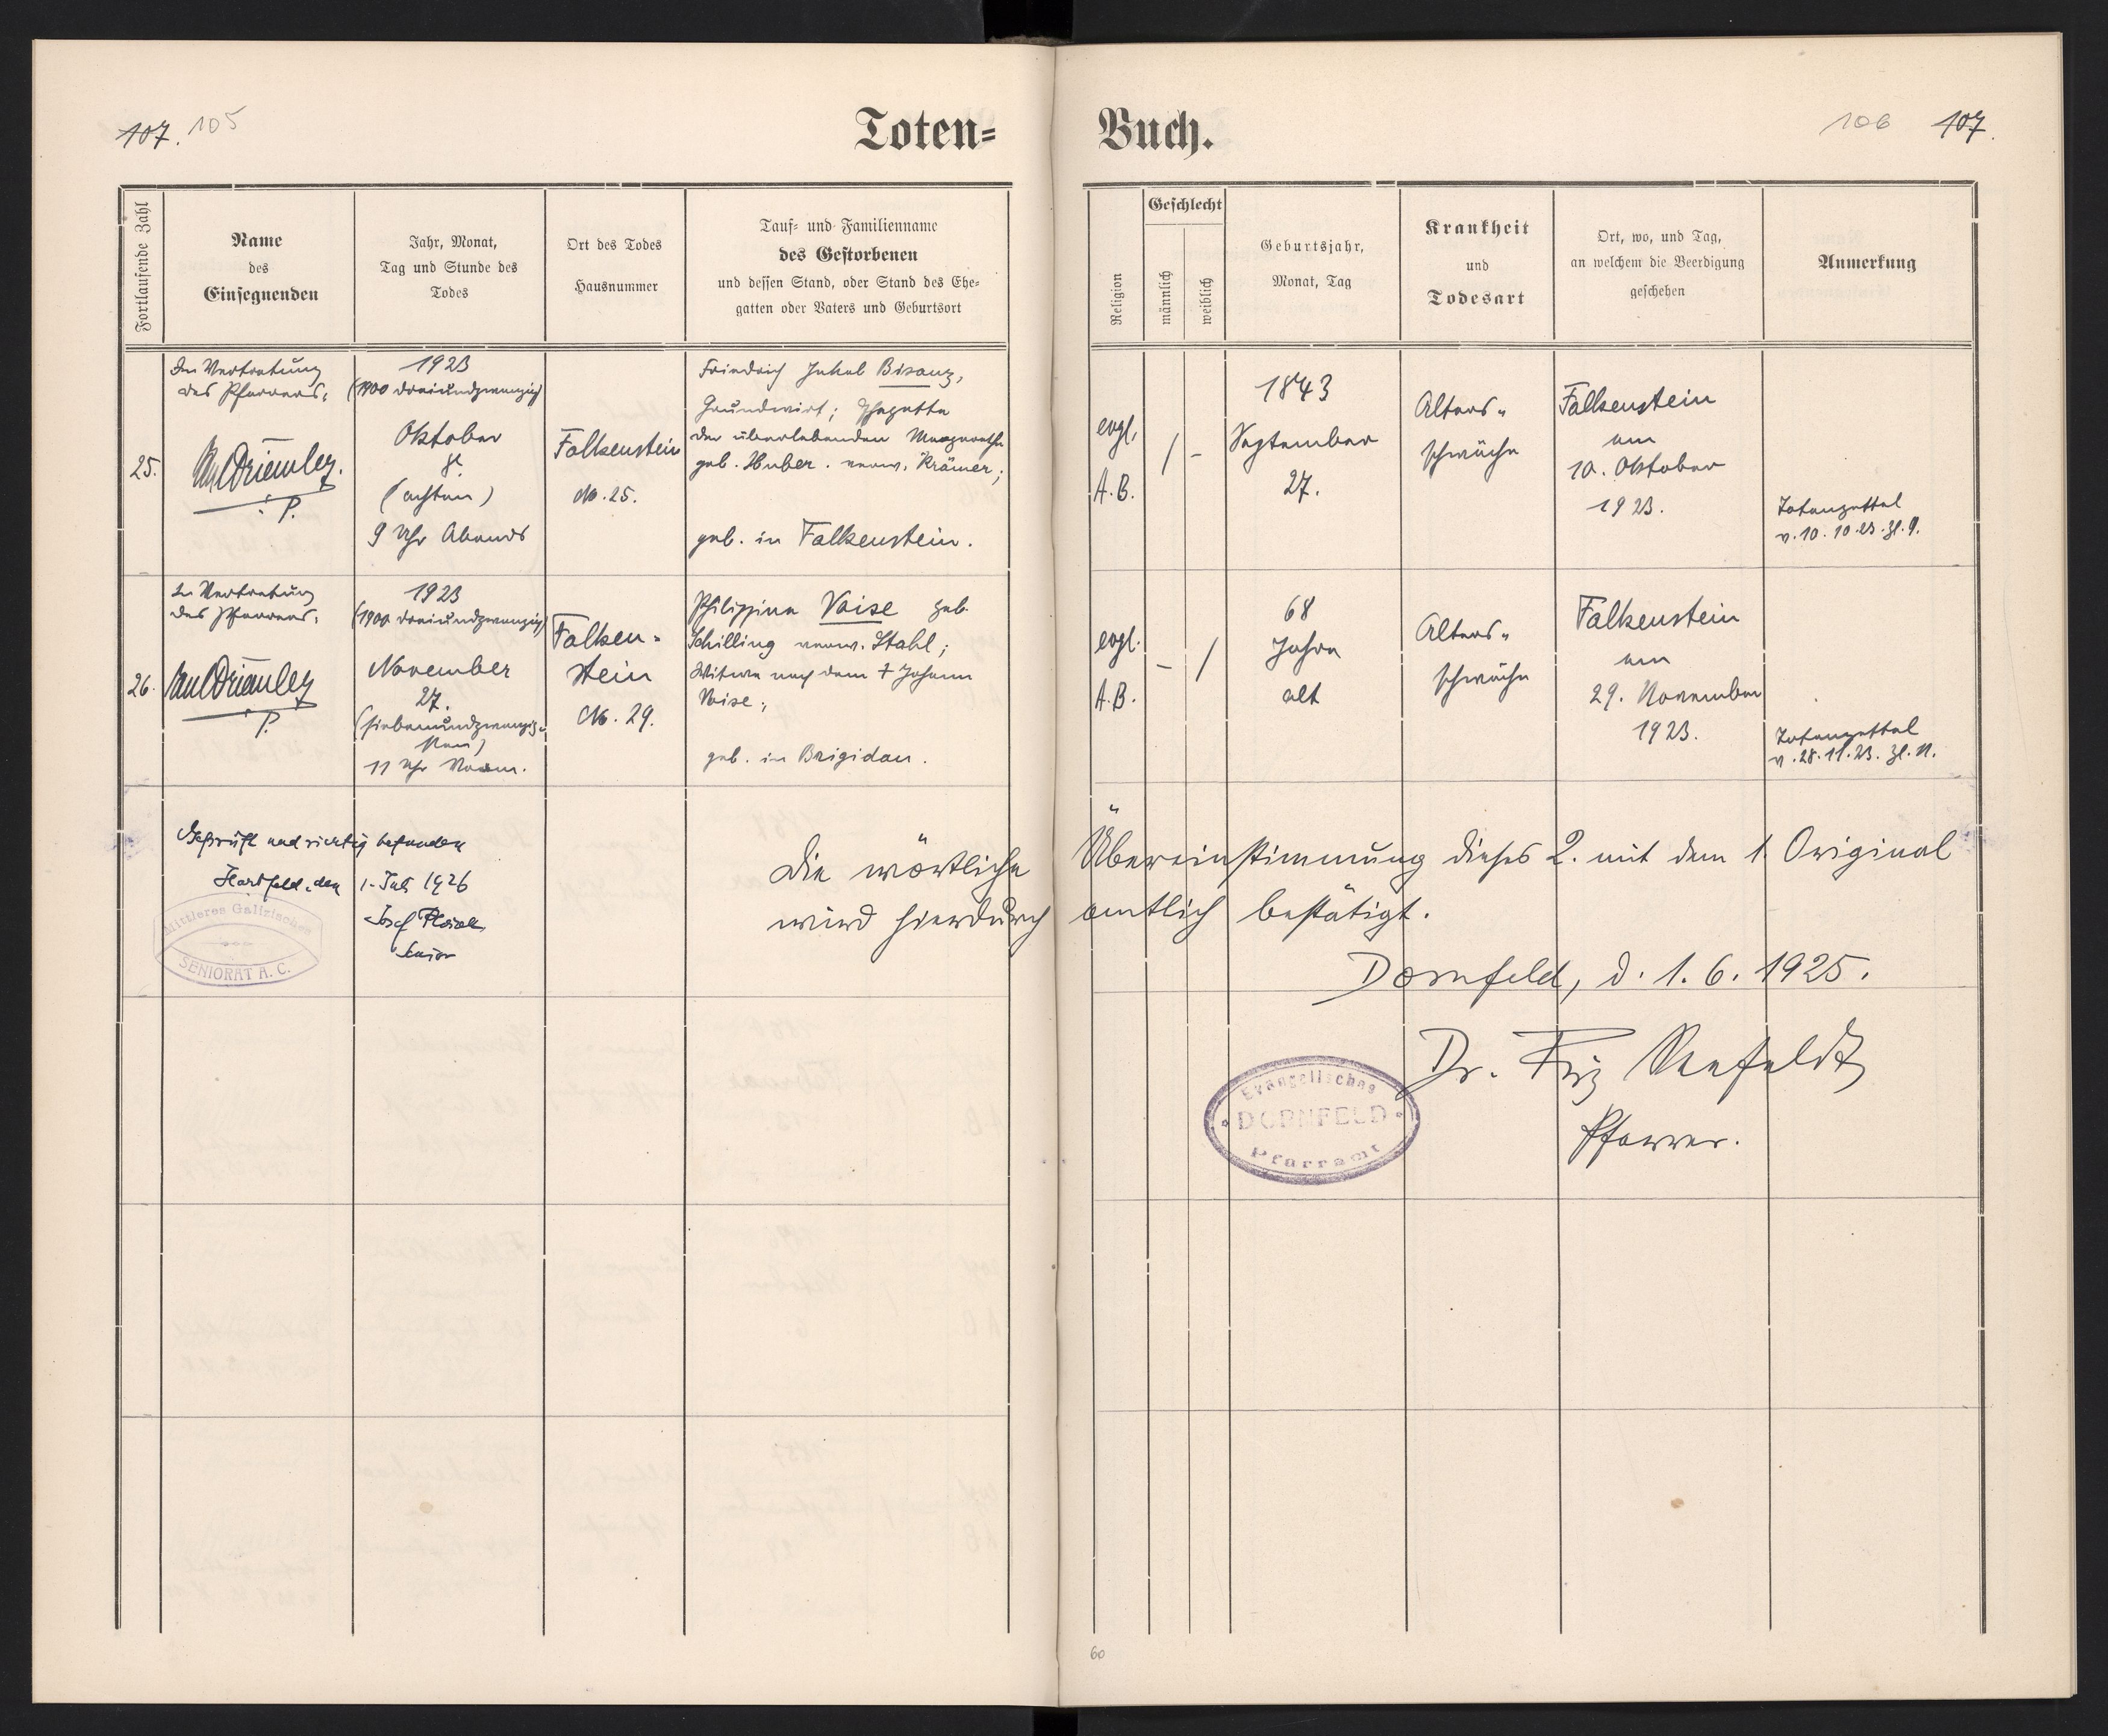 107. 105
Toten-
Buch.
106 107.
Fortlaufende Zahl
Name
des
Einsegnenden
Jahr, Monat,
Tag und Stunde des
Todes
Ort des Todes
Hausnummer
Tauf- und Familienname
des Gestorbenen
und dessen Stand, oder Stand des Ehe-
gatten oder Vaters und Geburtsort
Religion
Geschlecht
männlich
weiblich
Geburtsjahr,
Monat, Tag
Krankheit
und
Todesart
Ort, wo, und Tag,
an welchem die Beerdigung
geschehen
Anmerkung
25.
In Vertretung
des Pfarrers:
P.
1923
(1900 dreiundzwanzig)
Oktober
8.
(achten)
9 Uhr Abends
Falkenstein
No. 25.
Friedrich Jakob Bisanz,
Grundwirt; Ehegatte
der überlebenden Margarethe
geb. Huber. verw. Krämer;
geb. in Falkenstein.
evgl.
A.B.
/
-
1843
September
27.
Alters-
schwäche
Falkenstein
am
10. Oktober
1923.
Totenzettel
v. 10. 10. 23. Zl. 9.
26.
In Vertretung
des Pfarrers:
P.
1923
(1900 dreiundzwanzig)
November
27.
(siebenundzwanzig-
sten)
11 Uhr Vorm.
Falken-
stein
No. 29.
Philippine Vaise geb.
Schilling verw. Stahl;
Witwe nach dem † Johann
Vaise;
geb. in Brigidau.
evgl.
A.B.
-
/
68
Jahre
alt
Alters-
schwäche
Falkenstein
am
29. November
1923.
Totenzettel
v. 28. 11. 23. Zl. 11.
Geprüft und richtig befunden
Hartfeld, den 1. Juli 1926
Josef
Senior
Mittleres Galizisches
SENIORAT A. C.
Die wörtliche Übereinstimmung dieses 2. mit dem 1. Original
wird hierdurch amtlich bestätigt.
Dornfeld, d. 1. 6. 1925.
Dr. Friz Seefeldt
Pfarrer.
Evangelisches
DORNFELD
Pfarramt
60